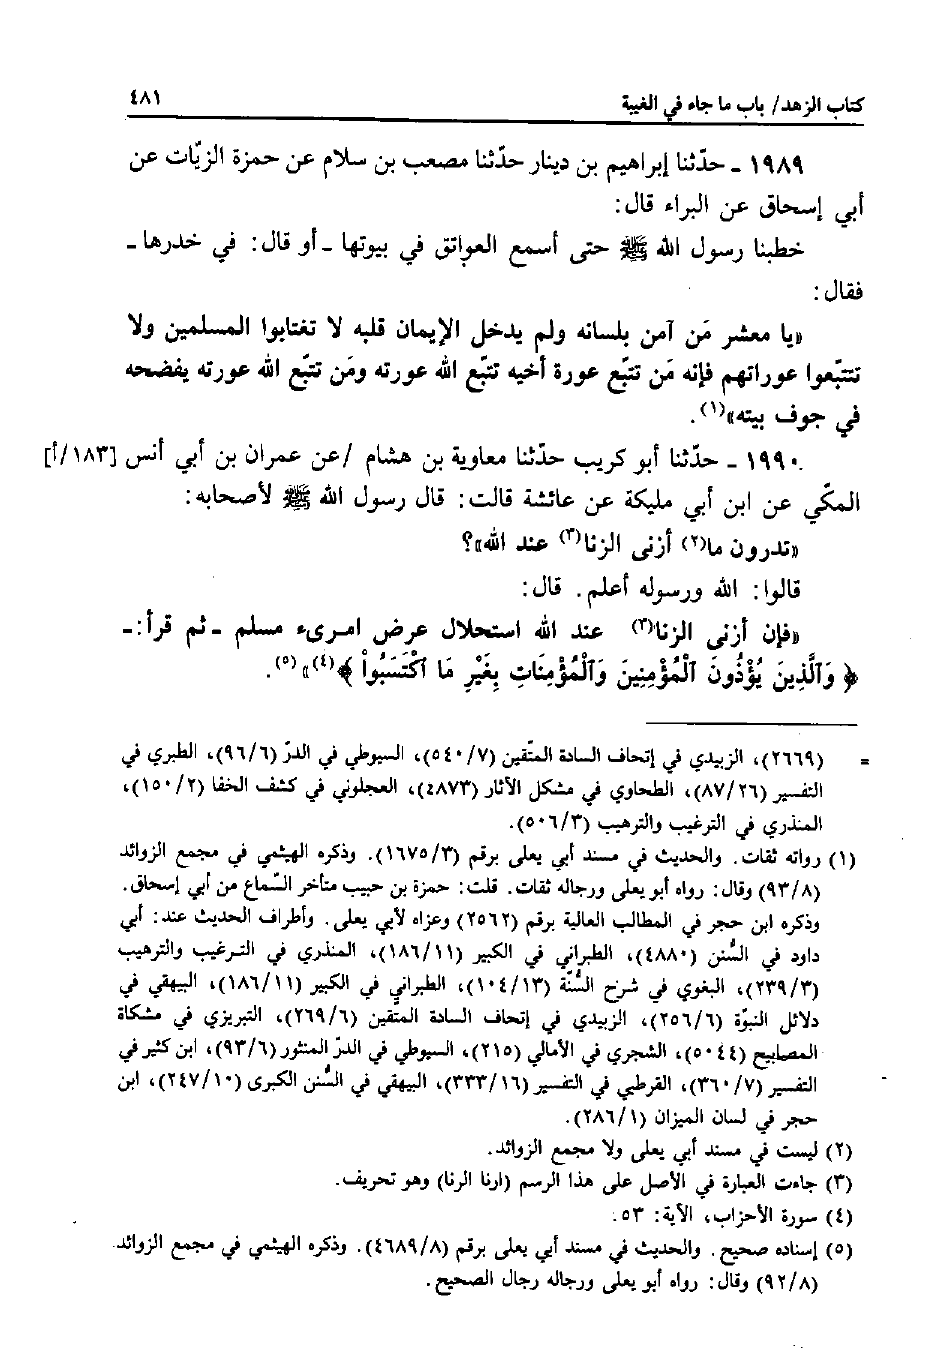 كتاب الزهد/ باب ما جاء في الغيبة ٤٨١
١٩٨٩ ـ حدّثنا إبراهيم بن دينار حدّثنا مصعب بن سلام عن حمزة الزيّات عن
أبي إسحاق عن البراء قال:
خطبنا رسول الله ﷺ حتى أسمع العواتق في بيوتها ـ أو قال: في خدرها ـ
فقال:
«يا معشر مَن آمن بلسانه ولم يدخل الإيمان قلبه لا تغتابوا المسلمين ولا
تتتبّعوا عوراتهم فإنه مَن تتبّع عورة أخيه تتبّع الله عورته ومَن تتبّع الله عورته يفضحه
في جوف بيته»(١).
١٩٩٠ ـ حدّثنا أبو كريب حدّثنا معاوية بن هشام /عن عمران بن أبي أنس [١٨٣/أ]
المكّي عن ابن أبي مليكة عن عائشة قالت: قال رسول الله ﷺ لأصحابه:
«تدرون ما(٢) أزنى الزنا(٣) عند الله»؟
قالوا: الله ورسوله أعلم. قال:
«فإن أزنى الزنا(٣) عند الله استحلال عرض امرىء مسلم ـ ثم قرأ: ـ
﴿وَالَّذِينَ يُؤْذُونَ الْمُؤْمِنِينَ وَالْمُؤْمِنَاتِ بِغَيْرِ مَا اكْتَسَبُواْ﴾(٤)» (٥).
= (٢٦٦٩)، الزبيدي في إتحاف السادة المتّقين (٥٤٠/٧)، السيوطي في الدرّ (٩٦/٦)، الطبري في
التفسير (٨٧/٢٦)، الطحاوي في مشكل الآثار (٤٨٧٣)، العجلوني في كشف الخفا (١٥٠/٢)،
المنذري في الترغيب والترهيب (٥٠٦/٣).
(١) رواته ثقات. والحديث في مسند أبي يعلى برقم (١٦٧٥/٣). وذكره الهيثمي في مجمع الزوائد
(٩٣/٨) وقال: رواه أبو يعلى ورجاله ثقات. قلت: حمزة بن حبيب متأخر السّماع من أبي إسحاق.
وذكره ابن حجر في المطالب العالية برقم (٢٥٦٢) وعزاه لأبي يعلى. وأطراف الحديث عند: أبي
داود في السُّنن (٤٨٨٠)، الطبراني في الكبير (١٨٦/١١)، المنذري في الترغيب والترهيب
(٢٣٩/٣)، البغوي في شرح السُّنّة (١٠٤/١٣)، الطبراني في الكبير (١٨٦/١١)، البيهقي في
دلائل النبوّة (٢٥٦/٦)، الزبيدي في إتحاف السادة المتقين (٢٦٩/٦)، التبريزي في مشكاة
المصابيح (٥٠٤٤)، الشجري في الأمالي (٢١٥)، السيوطي في الدرّ المنثور (٩٣/٦)، ابن كثير في
التفسير (٣٦٠/٧)، القرطبي في التفسير (٣٣٣/١٦)، البيهقي في السُّنن الكبرى (٢٤٧/١٠)، ابن
حجر في لسان الميزان (٢٨٦/١).
(٢) ليست في مسند أبي يعلى ولا مجمع الزوائد.
(٣) جاءت العبارة في الأصل على هذا الرسم (ارنا الرنا) وهو تحريف.
(٤) سورة الأحزاب، الآية: ٥٣.
(٥) إسناده صحيح. والحديث في مسند أبي يعلى برقم (٤٦٨٩/٨). وذكره الهيثمي في مجمع الزوائد
(٩٢/٨) وقال: رواه أبو يعلى ورجاله رجال الصحيح.